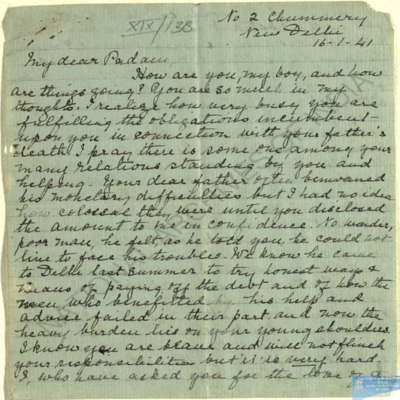 XIX/138
No 2 Chummery
New Delhi
15-1-41
My dear Padam,
How are you, my boy, and how
are things going? You are so much in my
thoughts. I realize how very busy you are
fulfilling the obligations incumbent
upon you in connection with your father's
death. I pray there is some one among your
many relations standing by you and
helping. Your dear father often bemoaned
his monetary difficulties but I had no idea
how colossal they were until you disclosed
the amount to me in confidence. No wonder,
poor man, he felt as he told you, he could not
live to face his troubles. We know he came
to Delhi last summer to try honest ways &
means of paying off the debt and of how the
men who benefitted by his help and
advice failed in their part and now the
heavy burden lies on your young shoulders.
I know you are brave and will not flinch
your responsibilities but it is very hard.
I, who have asked you for the love of a